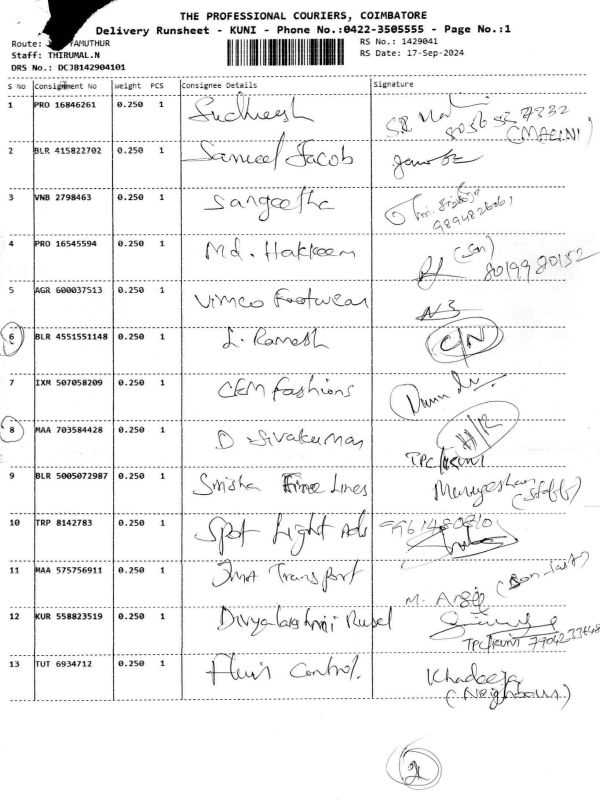 THE PROFESSIONAL COURIERS, COIMBATORE
Delivery Runsheet - KUNI - Phone No.:0422-3505555 - Page No.:1
Route: YAMUTHUR
RS No.: 1429041
Staff: THIRUMAL.N
RS Date: 17-Sep-2024
DRS No.: DCJB142904101
S No Consignment No weight PCS Consignee Details Signature
1 PRO 16846261 0.250 1 Sudheesh
(MALINI)
2 BLR 415822702 0.250 1 Samuel Jacob
3 VNB 2798463 0.250 1 Sangeetha
4 PRO 16545594 0.250 1 Md. Hakkeem
(Son)
8019980152
5 AGR 600037513 0.250 1 Vimco Footwear
6 BLR 4551551148 0.250 1 L. Ramesh C/N
7 IXM 507058209 0.250 1 CEM Fashions
8 MAA 703584428 0.250 1 D Sivakumar H/R
TPC/KUNI
9 BLR 5005072987 0.250 1 Smisha Fine Lines Murugeshan
(Staff)
10 TRP 8142783 0.250 1 Spot Light Ads 9961480810
11 MAA 575756911 0.250 1 Transport
M.
12 KUR 558823519 0.250 1 Divyalakshmi
TPC/KUNI
13 TUT 6934712 0.250 1 Fluis Control. Khadeeja
(Neighbours)